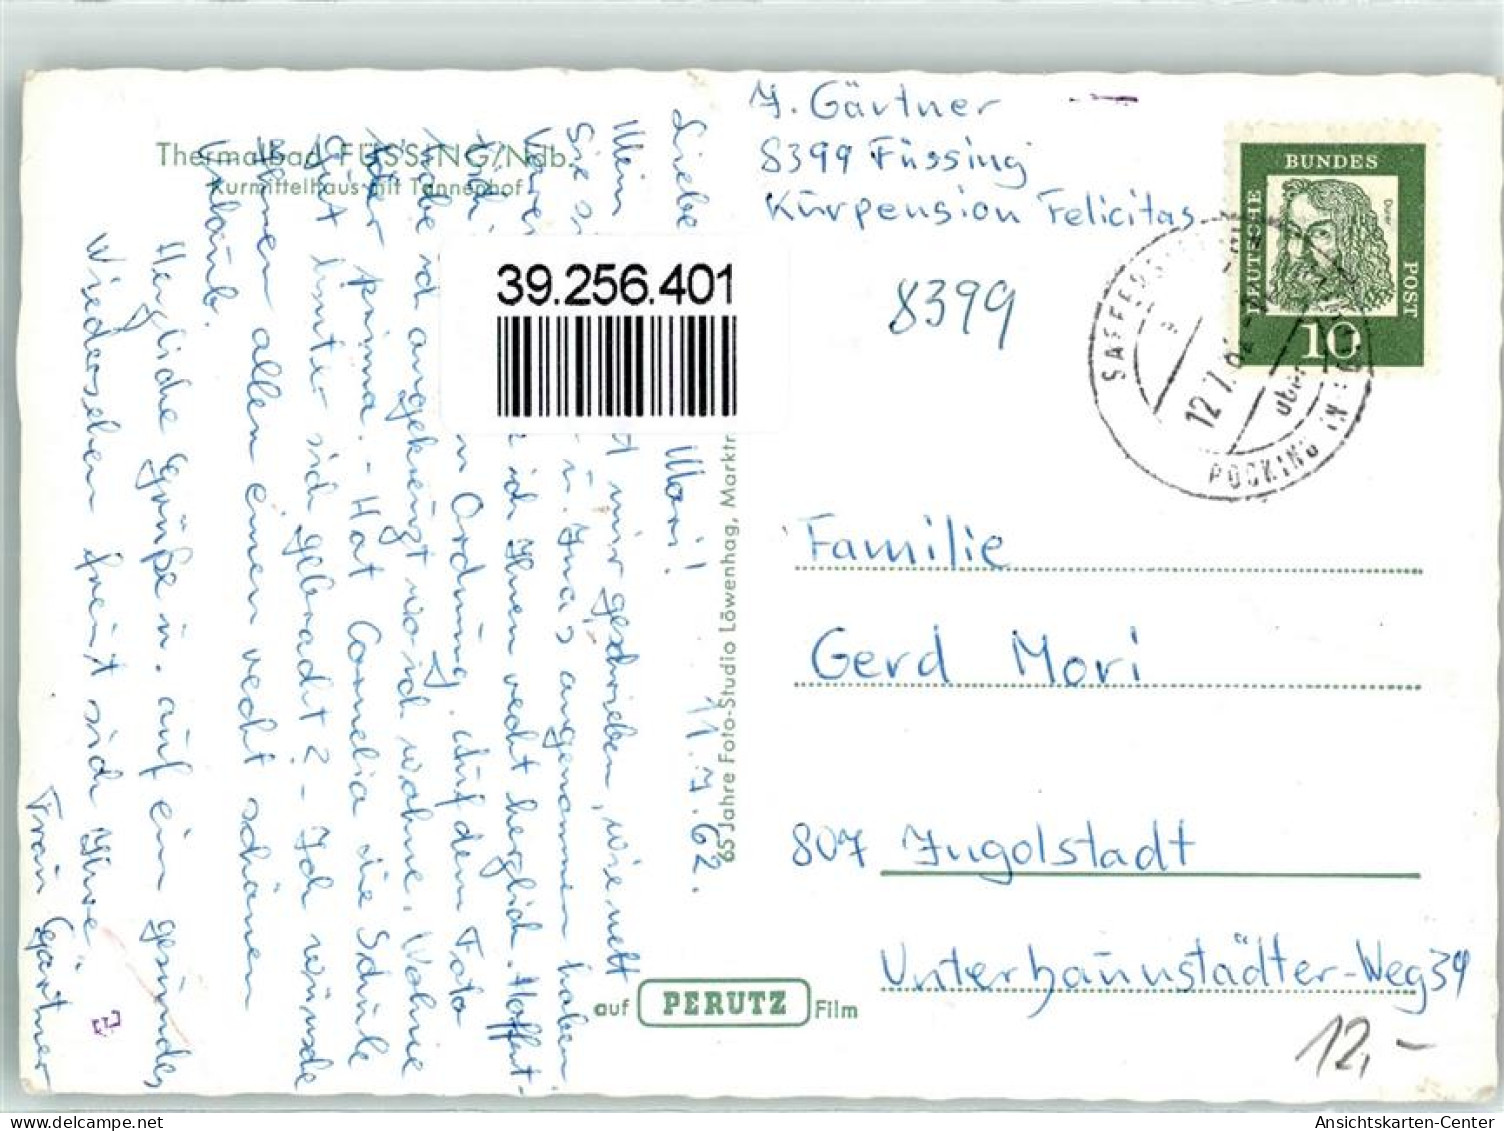 Thermalbad FÜSSING/Ndb.
Kurmittelhaus mit Tannenhof
J. Gärtner
8399 Füssing
Kurpension Felicitas
8399
DEUTSCHE
BUNDES
POST
Dürer
10
12.7.62
über
POCKING
39.256.401
Familie
Gerd Mori
807 Ingolstadt
Unterhaunstädter-Weg 39
12,-
65 Jahre Foto-Studio Löwenhag, Marktr
auf PERUTZ Film
11.7.62.
Liebe Mori!
Mein mir geschrieben, wie nett
Sie u. Ina's angenommen haben.
ich Ihnen recht herzlich. Hoffent-
in Ordnung. Auf dem Foto
habe ich angekreuzt wo ich wohne. Wohne
prima. - Hat Cornelia die Schule
gut hinter sich gebracht? - Ich wünsche
Ihnen allen einen recht schönen
Urlaub.
Herzliche Grüße u. auf ein gesundes
Wiedersehen freut sich Ihre
Frau Gärtner
Ansichtskarten-Center